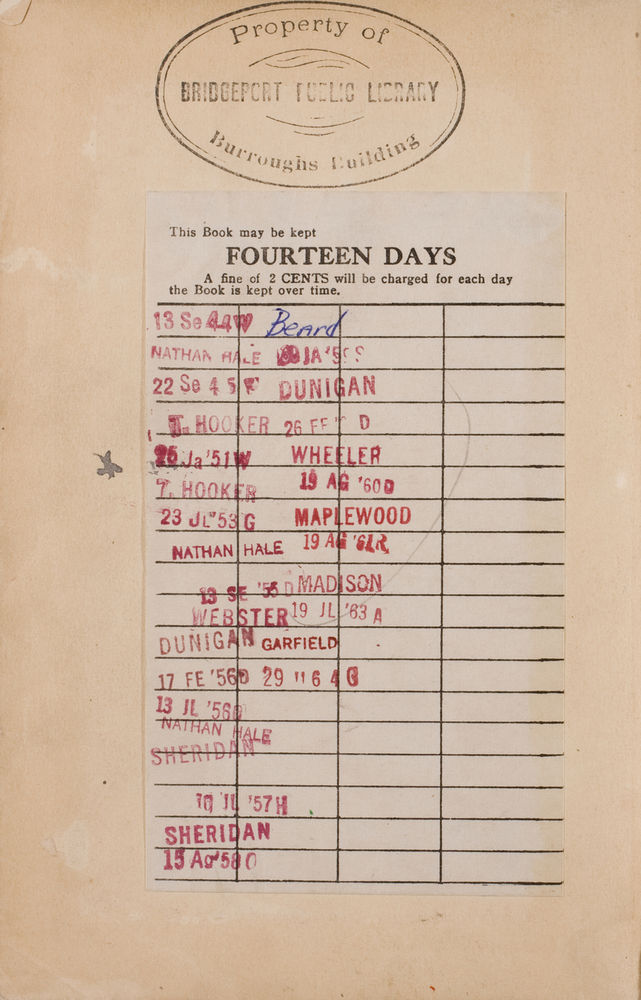 Property of
BRIDGEPORT PUBLIC LIBRARY
Burroughs Building
This Book may be kept
FOURTEEN DAYS
A fine of 2 CENTS will be charged for each day
the Book is kept over time.
13 Se 44W Beard
NATHAN HALE JA
22 Se 45 DUNIGAN
T. HOOKER 26 FE D
25 Ja '51W WHEELER
T. HOOKER 19 AG '60D
23 JL '53 G MAPLEWOOD
NATHAN HALE 19 AG '61R
19 SE '55 D MADISON
WEBSTER 19 JL '63 A
DUNIGAN GARFIELD
17 FE '56D 29 64G
13 JL '56
NATHAN HALE
SHERIDAN
JL '57H
SHERIDAN
15 Ag '58